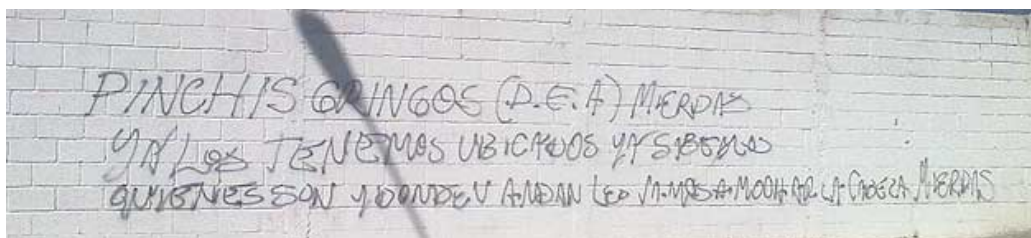 PINCHIS GRINGOS (D.E.A) MIERDAS
YA LOS TENEMOS UBICADOS YA SABEMOS
QUIENES SON Y DONDEN ANDAN LES VAMOS A MOCHAR LA CABEZA MIERDAS